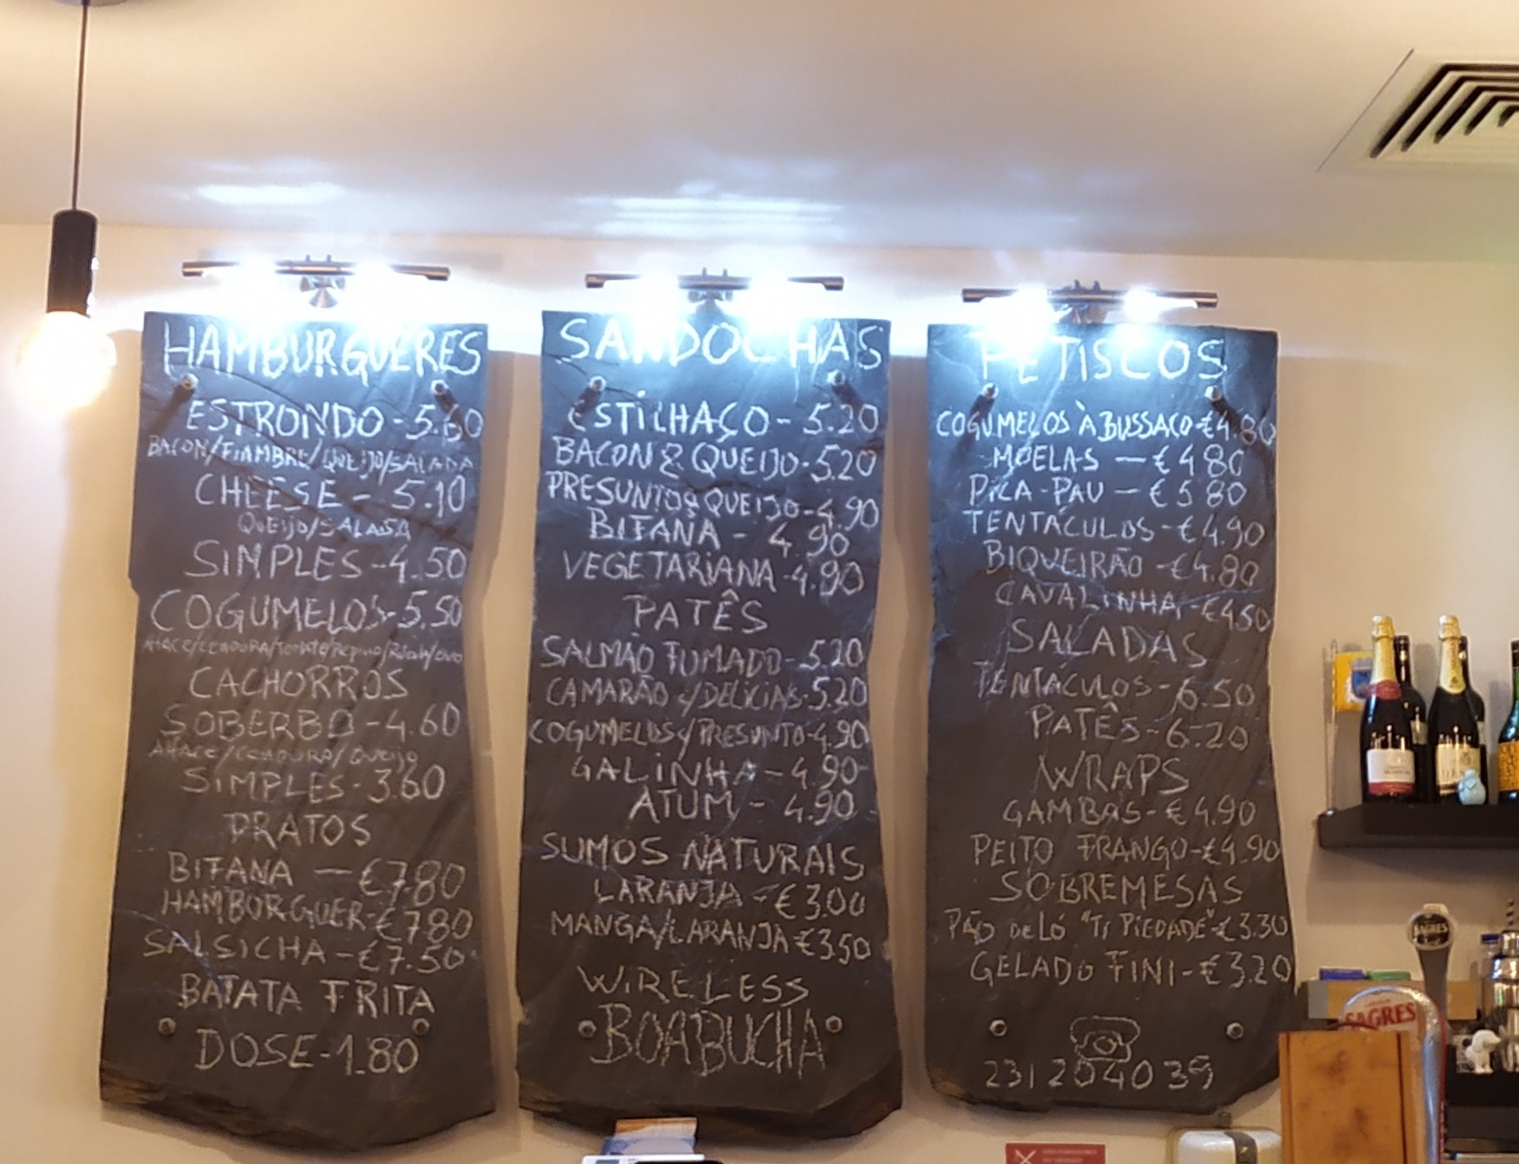 HAMBURGUERES
ESTRONDO-5.60
BACON/FIAMBRE/QUEIJO/SALADA
CHEESE - 5.10
QUEIJO/SALADA
SIMPLES-4.50
COGUMELOS-5.50
ALFACE/CENOURA/TOMATE/PEPINO/RÚCULA/OVO
CACHORROS
SOBERBO-4.60
ALFACE/CENOURA/QUEIJO
SIMPLES-3.60
PRATOS
BIFANA — €7.80
HAMBURGUER-€7.80
SALSICHA-€7.50
BATATA FRITA
DOSE-1.80
SANDOCHAS
ESTILHAÇO-5.20
BACON & QUEIJO-5.20
PRESUNTO & QUEIJO-4.90
BIFANA - 4.90
VEGETARIANA-4.90
PATÊS
SALMÃO FUMADO-5.20
CAMARÃO c/DELÍCIAS-5.20
COGUMELOS c/PRESUNTO-4.90
GALINHA-4.90
ATUM - 4.90
SUMOS NATURAIS
LARANJA-€3.00
MANGA/LARANJA €3.50
WIRELESS
BOABUCHA
PETISCOS
COGUMELOS À BUSSACO-€4.80
MOELAS — €4.80
PICA-PAU — €5.80
TENTÁCULOS-€4.90
BIQUEIRÃO-€4.80
CAVALINHA-€4.50
SALADAS
TENTÁCULOS-6.50
PATÊS-6.20
WRAPS
GAMBAS-€4.90
PEITO FRANGO-€4.90
SOBREMESAS
PÃO DE LÓ "TI PIEDADE"-€3.30
GELADO FINI-€3.20
231204039
SAGRES
SAGRES